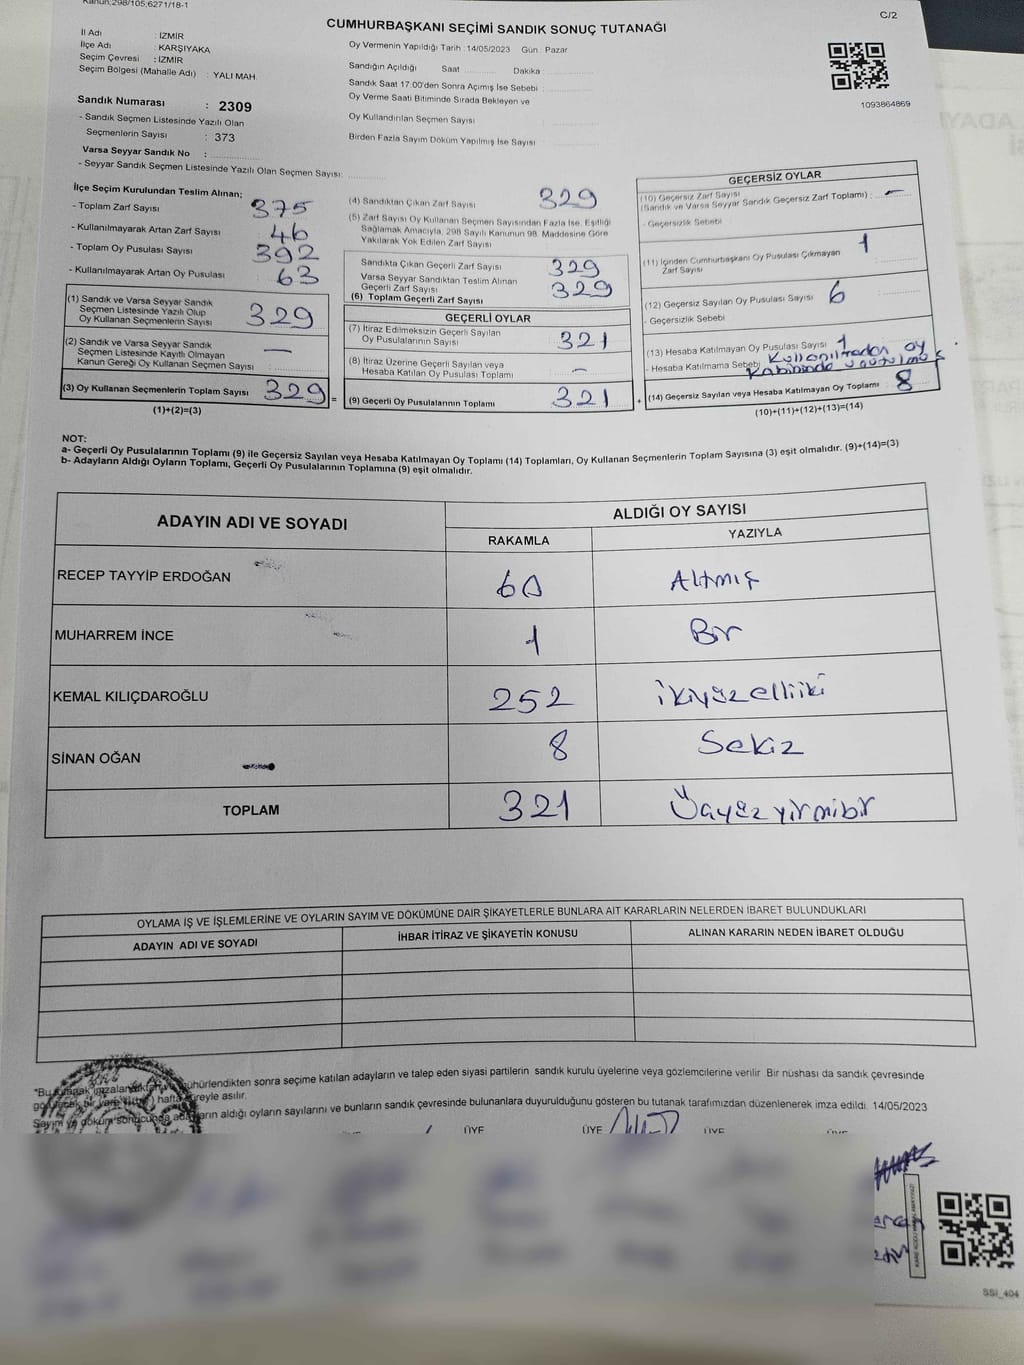 Kanun;298/105;6271/18-1
C/2
CUMHURBAŞKANI SEÇİMİ SANDIK SONUÇ TUTANAĞI
İl Adı : İZMİR
İlçe Adı : KARŞIYAKA
Seçim Çevresi : İZMİR
Seçim Bölgesi (Mahalle Adı) : YALI MAH.
Sandık Numarası : 2309
- Sandık Seçmen Listesinde Yazılı Olan
Seçmenlerin Sayısı : 373
Varsa Seyyar Sandık No :
- Seyyar Sandık Seçmen Listesinde Yazılı Olan Seçmen Sayısı:
Oy Vermenin Yapıldığı Tarih : 14/05/2023 Gün : Pazar
Sandığın Açıldığı Saat Dakika :
Sandık Saat 17:00'den Sonra Açımış İse Sebebi :
Oy Verme Saati Bitiminde Sırada Bekleyen ve
Oy Kullandırılan Seçmen Sayısı
Birden Fazla Sayım Döküm Yapılmış İse Sayısı
1093864869
İlçe Seçim Kurulundan Teslim Alınan;
- Toplam Zarf Sayısı 375
- Kullanılmayarak Artan Zarf Sayısı 46
- Toplam Oy Pusulası Sayısı 392
- Kullanılmayarak Artan Oy Pusulası 63
(1) Sandık ve Varsa Seyyar Sandık
Seçmen Listesinde Yazılı Olup
Oy Kullanan Seçmenlerin Sayısı 329
(2) Sandık ve Varsa Seyyar Sandık
Seçmen Listesinde Kayıtlı Olmayan
Kanun Gereği Oy Kullanan Seçmen Sayısı —
(3) Oy Kullanan Seçmenlerin Toplam Sayısı 329 =
(1)+(2)=(3)
(4) Sandıktan Çıkan Zarf Sayısı 329
(5) Zarf Sayısı Oy Kullanan Seçmen Sayısından Fazla İse, Eşitliği
Sağlamak Amacıyla, 298 Sayılı Kanunun 98. Maddesine Göre
Yakılarak Yok Edilen Zarf Sayısı
Sandıkta Çıkan Geçerli Zarf Sayısı 329
Varsa Seyyar Sandıktan Teslim Alınan
Geçerli Zarf Sayısı 329
(6) Toplam Geçerli Zarf Sayısı
GEÇERLİ OYLAR
(7) İtiraz Edilmeksizin Geçerli Sayılan
Oy Pusulalarının Sayısı 321
(8) İtiraz Üzerine Geçerli Sayılan veya
Hesaba Katılan Oy Pusulası Toplamı —
(9) Geçerli Oy Pusulalarının Toplamı 321 +
GEÇERSİZ OYLAR
(10) Geçersiz Zarf Sayısı
(Sandık ve Varsa Seyyar Sandık Geçersiz Zarf Toplamı) : —
- Geçersizlik Sebebi
(11) İçinden Cumhurbaşkanı Oy Pusulası Çıkmayan 1
Zarf Sayısı
(12) Geçersiz Sayılan Oy Pusulası Sayısı 6
- Geçersizlik Sebebi
(13) Hesaba Katılmayan Oy Pusulası Sayısı 1
- Hesaba Katılmama Sebebi Kullanılmadan oy
kabininde unutulmuş
(14) Geçersiz Sayılan veya Hesaba Katılmayan Oy Toplamı 8
(10)+(11)+(12)+(13)=(14)
NOT:
a- Geçerli Oy Pusulalarının Toplamı (9) ile Geçersiz Sayılan veya Hesaba Katılmayan Oy Toplamı (14) Toplamları, Oy Kullanan Seçmenlerin Toplam Sayısına (3) eşit olmalıdır. (9)+(14)=(3)
b- Adayların Aldığı Oyların Toplamı, Geçerli Oy Pusulalarının Toplamına (9) eşit olmalıdır.
ADAYIN ADI VE SOYADI
ALDIĞI OY SAYISI
RAKAMLA YAZIYLA
RECEP TAYYİP ERDOĞAN 60 Altmış
MUHARREM İNCE 1 Bir
KEMAL KILIÇDAROĞLU 252 ikiyüzelliiki
SİNAN OĞAN 8 Sekiz
TOPLAM 321 Üçyüzyirmibir
OYLAMA İŞ VE İŞLEMLERİNE VE OYLARIN SAYIM VE DÖKÜMÜNE DAİR ŞİKAYETLERLE BUNLARA AİT KARARLARIN NELERDEN İBARET BULUNDUKLARI
ADAYIN ADI VE SOYADI İHBAR İTİRAZ VE ŞİKAYETİN KONUSU ALINAN KARARIN NEDEN İBARET OLDUĞU
"Bu tutanak imzalandıktan mühürlendikten sonra seçime katılan adayların ve talep eden siyasi partilerin sandık kurulu üyelerine veya gözlemcilerine verilir. Bir nüshası da sandık çevresinde
görülecek bir yere hafta süreyle asılır.
Sayım ve döküm sonucunda adayların aldığı oyların sayılarını ve bunların sandık çevresinde bulunanlara duyurulduğunu gösteren bu tutanak tarafımızdan düzenlenerek imza edildi. 14/05/2023
ÜYE ÜYE ÜYE
SSİ_404